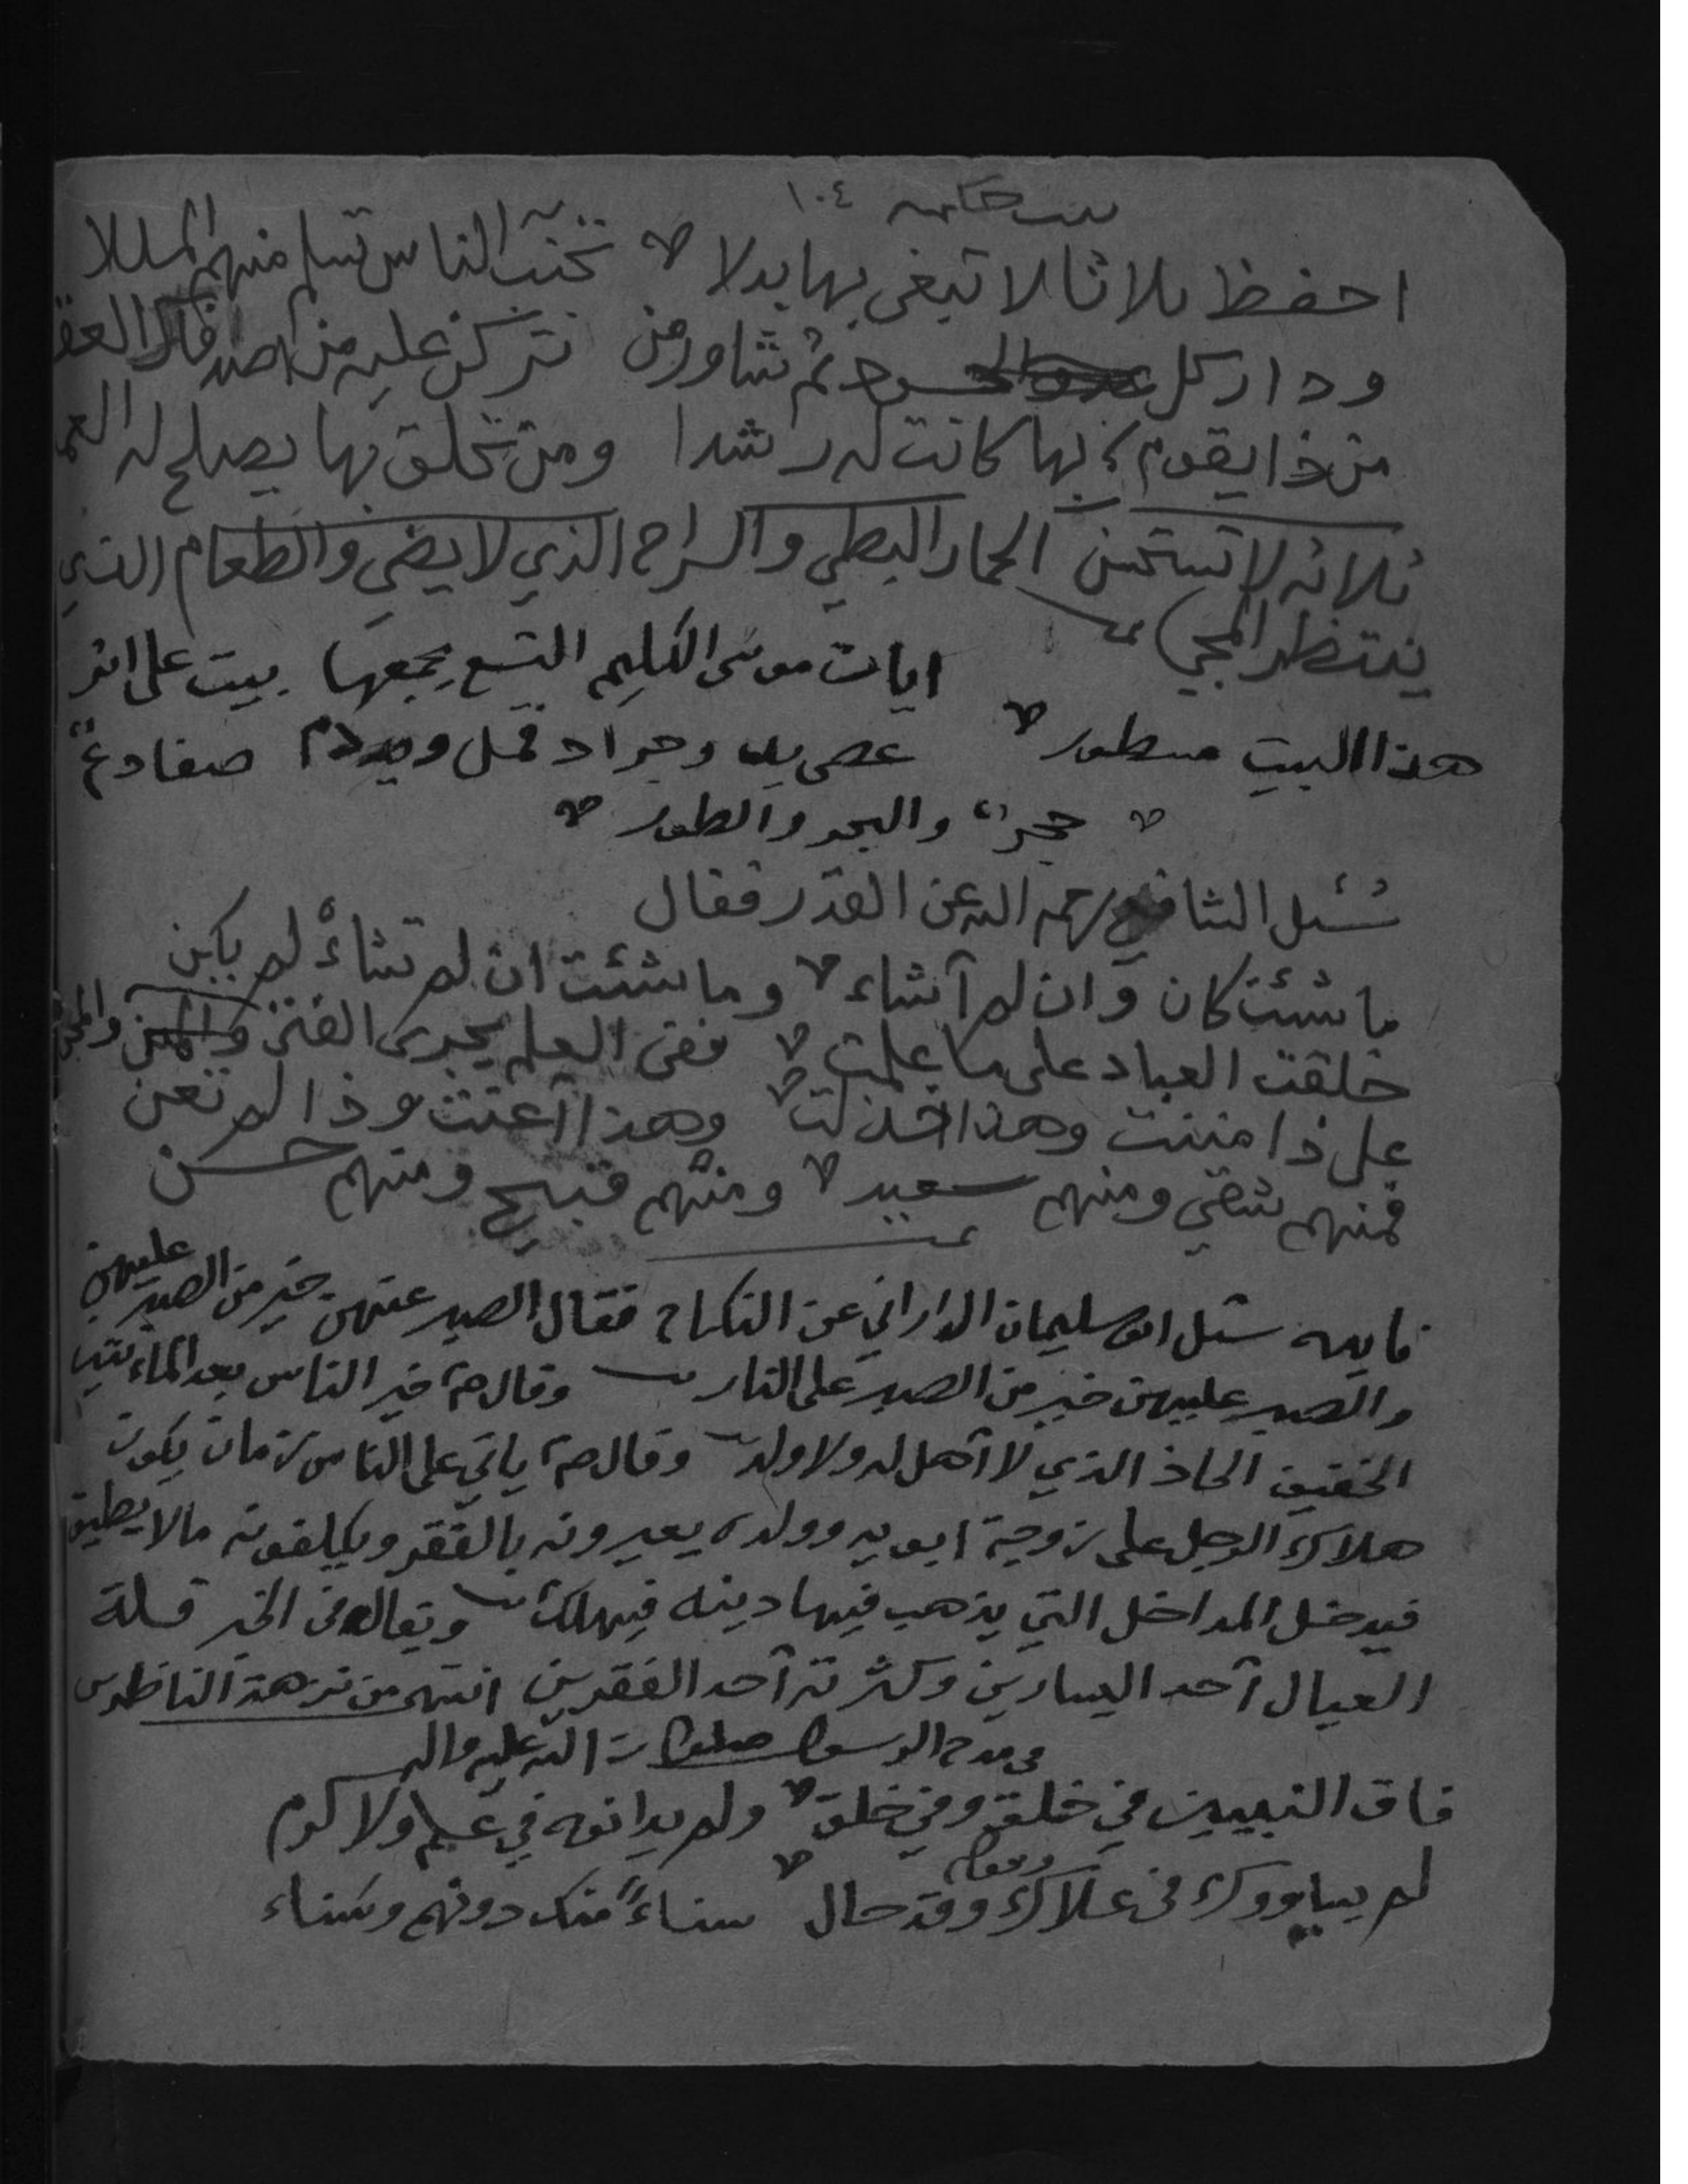 بيت حكمه ١٠٤
احفظ ثلاثا لا تبغي بها بدلا تجنب الناس تسلم منهم المللا
ودار كل حسود ثم شاور من تركن عليه من
من ذا يقوم بها كانت له رشدا ومن تخلق بها يصلح له
ثلاثه لا تستحسن الحمار البطي والسراج الذي لا يضي والطعام الذي
ينتظر المجي
ايات موسى الكليم التسع يجمعها بيت على اثر
هذا البيت مسطور عصى يد وجراد قمل ودم ضفادع
حجر والبحر والطور
سُئل الشافعي رحمه الله عن القدر فقال
ما شئت كان وان لم آشاء وما شئت ان لم تشاء لم يكن
خلقت العباد على ما علمت ففي العلم يجرى الفتى والمسن
على ذا مننت وهذا خذلت وهذا آعنت وذا لم تعن
فمنهم شقي ومنهم سعيد ومنهم قبيح ومنهم حسن
فايده سئل ابو سليمان الداراني عن النكاح فقال الصبر عنهن خير من الصبر عليهن
والصبر عليهن خير من الصبر على النار وقال خير الناس بعد المأتين
الخفيف الحاذ الذي لا آهل له ولا ولد وقال ياتي على الناس زمان يكون
هلاك الرجل على زوجة ابويه وولده يعيرونه بالفقر ويكلفونه مالا يطيق
فيدخل المداخل التي يذهب فيها دينه فيهلك ويقال في الخبر قلة
العيال آحد اليسارين وكثرته آحد الفقرين انتهى من نزهة الناظرين
في مدح الرسول صلوات الله عليه واله
فاق النبيين في خلق وفي خلق ولم يدانوه في علم ولا كرم
لم يساووك في علاك وقد حال سناءً منك دونهم وسناء